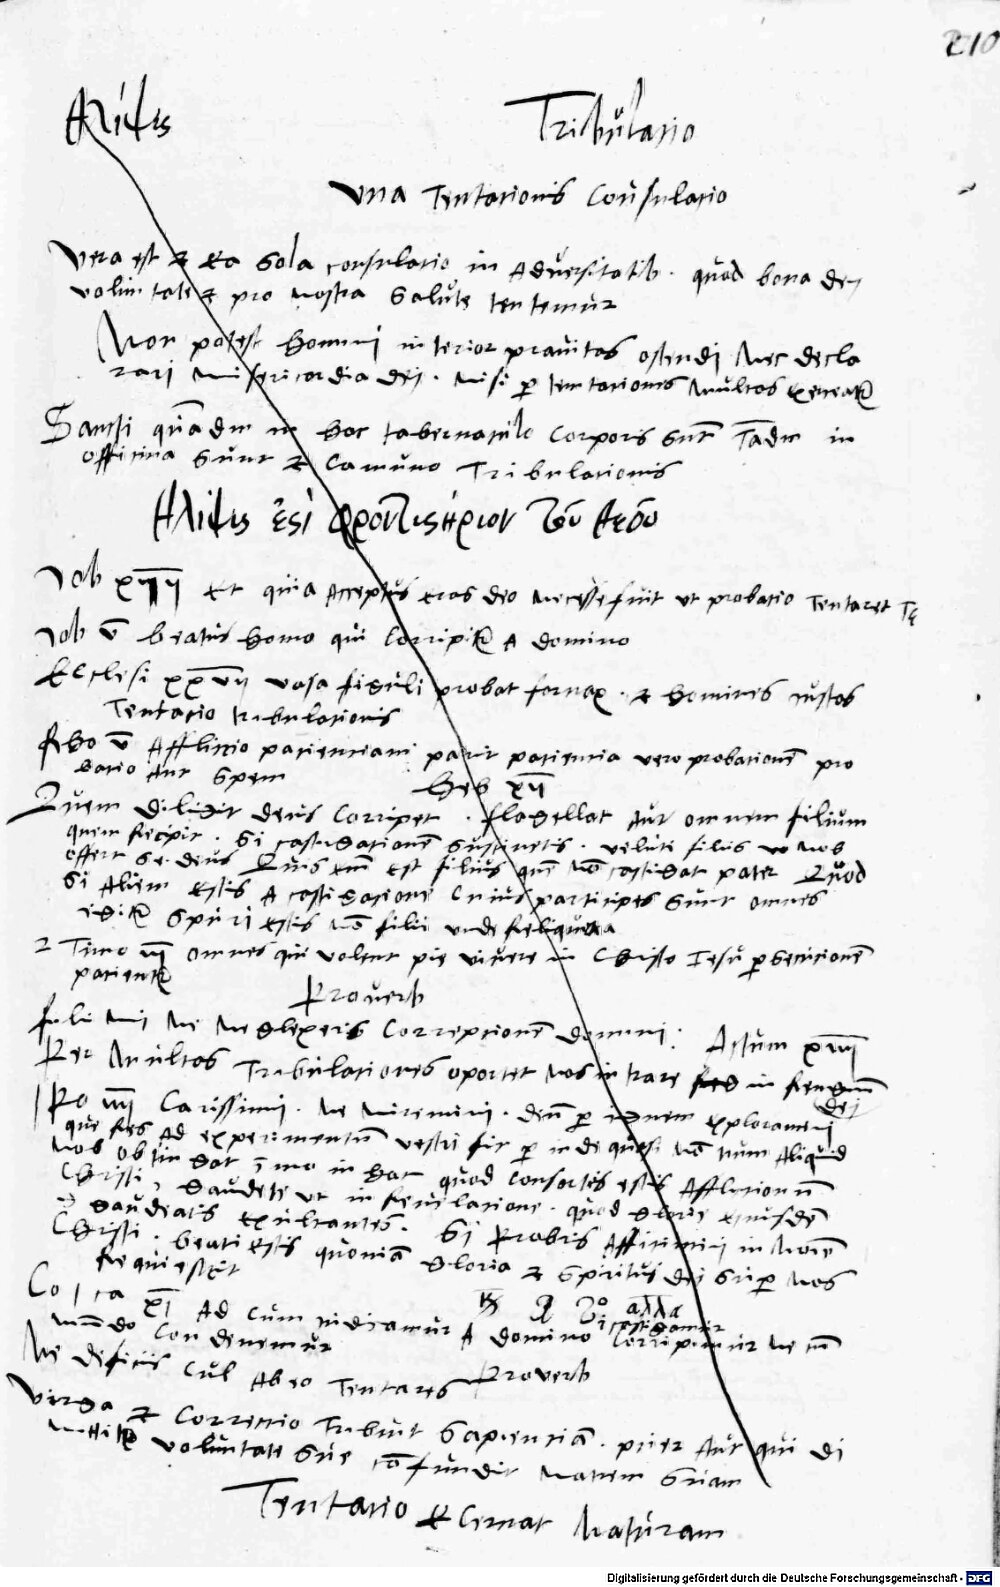 210
θλίψις Tribulatio
Una Tentationis Consulatio
Vera est et ea sola consulatio in adversitatib. quod bona dei
voluntate et pro nostra salute tentemur
Non potest homini interior pravitas ostendi Nec decla
rari misericordia dei. nisi p tentationis multas
Sancti quãdiu in hoc tabernaculo corporis sunt Tãdiu in
officina sunt et camino Tribulationis
θλίψις ἐςὶ τοῦ θεοῦ
Iob Et quia acceptus eras deo necesse fuit ut probatio tentaret te
Iob v beatus homo qui corripitur a domino
Ecclesi xxvii vasa figuli probat fornax. et homines iustos
Tentatio tribulationis
Rho v Afflictio patientiam parit patientia vero probationē pro
batio aut spem
Heb xii
Quem diligit deus corripit. flagellat aut omnem filium
quem recipit. Si castigationē sustinetis. velute filiis vo nob
offert se deus Quis em est filius quē nō castigat pater Quod
si aliem estis a castigatione cuius participes sunt omnes
igitur spurii estis nō filii unde reliqua
2 Timo iii omnes qui volent pie vivere in Christo Iesu psecucionē
patientur
Proverb
fili mi ne neglexeris correptionē domini. Actum xiiii
Per multas Tribulationes oportet nos intrare in regnum
dei
Po iiii Carissimi. Ne miremini. dum p ignem explorameni
que res ad experimentum vestri fit p inde quasi nō num aliquid
nob obtingat imo in hac quod consortes estis afflictionū
Christi, gaudete ut in revelatione. quod glorie eiusdē
gaudeatis exultantes. Si probris afficimini in nomē
Christi. beati estis quoniā gloria et spiritus dei sup nos
requiescit
xi Ad cum iudicamur a domino corripimur ne cum
castigamur
ἀλλα
mundo condemnemur
Ne deficiis cul ab eo Tentares Proverb
Virga et correctio tribuit sapientiā. puer aut qui di
mittitur voluntate sue cōfundit matrem suam
Tentatio et cernat naturam
Digitalisierung gefördert durch die Deutsche Forschungsgemeinschaft - DFG